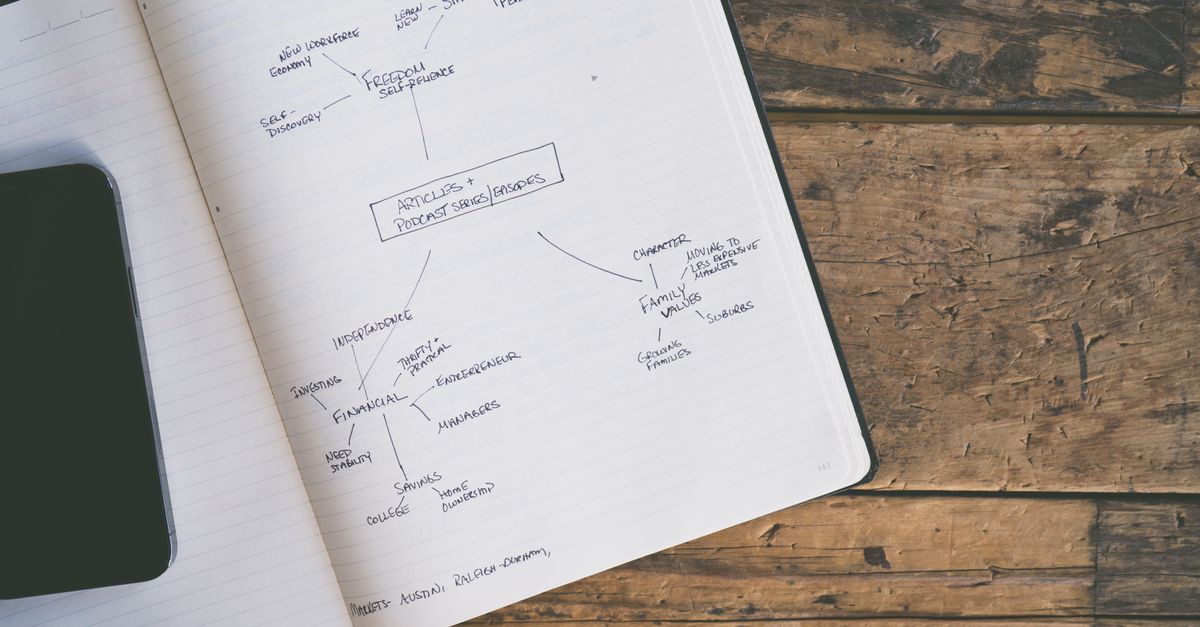 LEARN
NEW
NEW WORKFORCE
ECONOMY
FREEDOM
SELF-RELIENCE
SELF-
DISCOVERY
ARTICLES +
PODCAST SERIES/EPISODES
CHARACTER
MOVING TO
LESS EXPENSIVE
MARKETS
FAMILY
VALUES
SUBURBS
GROWING
FAMILIES
INDEPENDENCE
THRIFTY +
PRATICAL
INVESTING
ENTREPRENEUR
FINANCIAL
MANAGERS
NEED
STABILITY
SAVINGS
HOME
OWNERSHIP
COLLEGE
MARKETS- AUSTIN, RALEIGH-DURHAM,
147